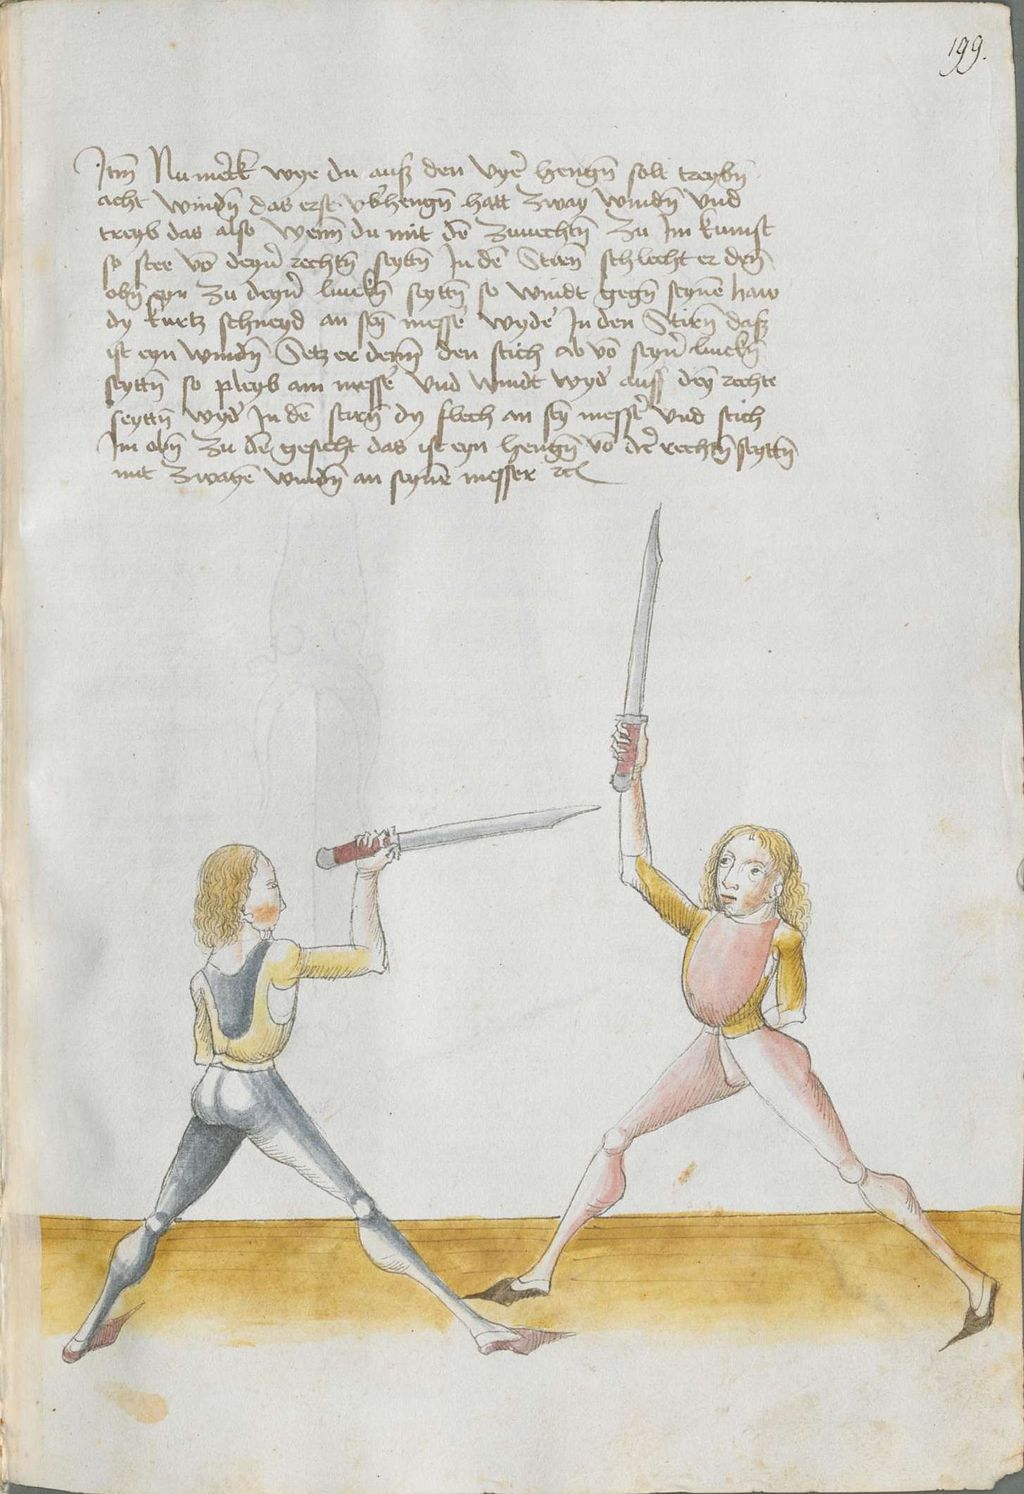 199.
Itm̄ Nu merck wye du auß den vyer̄ hengn̄ solt treybn̄
acht windn̄ das erst vb̕hengn̄ hatt zway windn̄ vnd
treyb das also wenn du mit dē zuuechtn̄ zu Im kumst
so stee vō deyn̕ rechtn̄ seyttn̄ In dē Stirn̄ schlecht er den̄
obn̄ eyn zu deyn̕ linckn̄ seyttn̄ so windt gegn̄ seynē haw
dy kurtz schneyd an sey̅ messe̕ wyde̕ In den Stirn̄ daß
ist eyn windn̄ Setz er denn̄ den stich ab vō seyn̕ linckn̄
seyttn̄ so pleyb am messe̕ vnd windt wyd̕ auff dey̅ rechte
seyttn̄ wyd̕ In dē stirn̄ dy flech an sey̅ messe̕ vnd stich
Im obn̄ zu dē gesicht das ist eyn hengn̄ vō der̕ rechtn̄ seyttn̄
mit zwayē windn̄ an seynē messer ꝛcꝉ